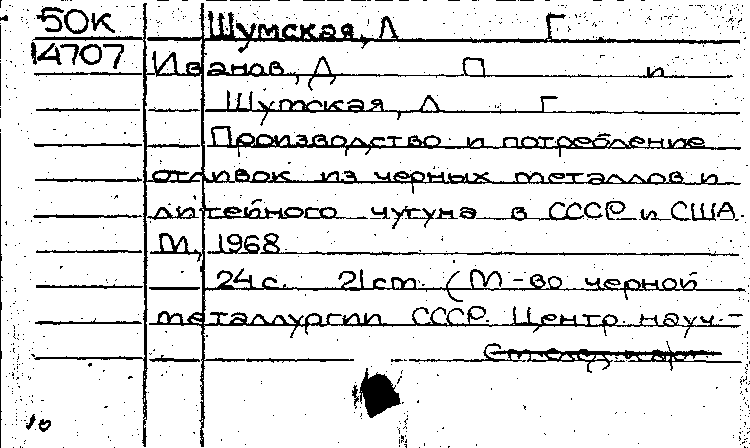 50К Шумская, Л Г
14707 Иванов, Д П и
Шумская, Л Г
Производство и потребление
отливок из черных металлов и
литейного чугуна в СССР и США.
М, 1968
24 с. 21 cm. (М-во черной
металлургии СССР. Центр науч.-
См след карт
10